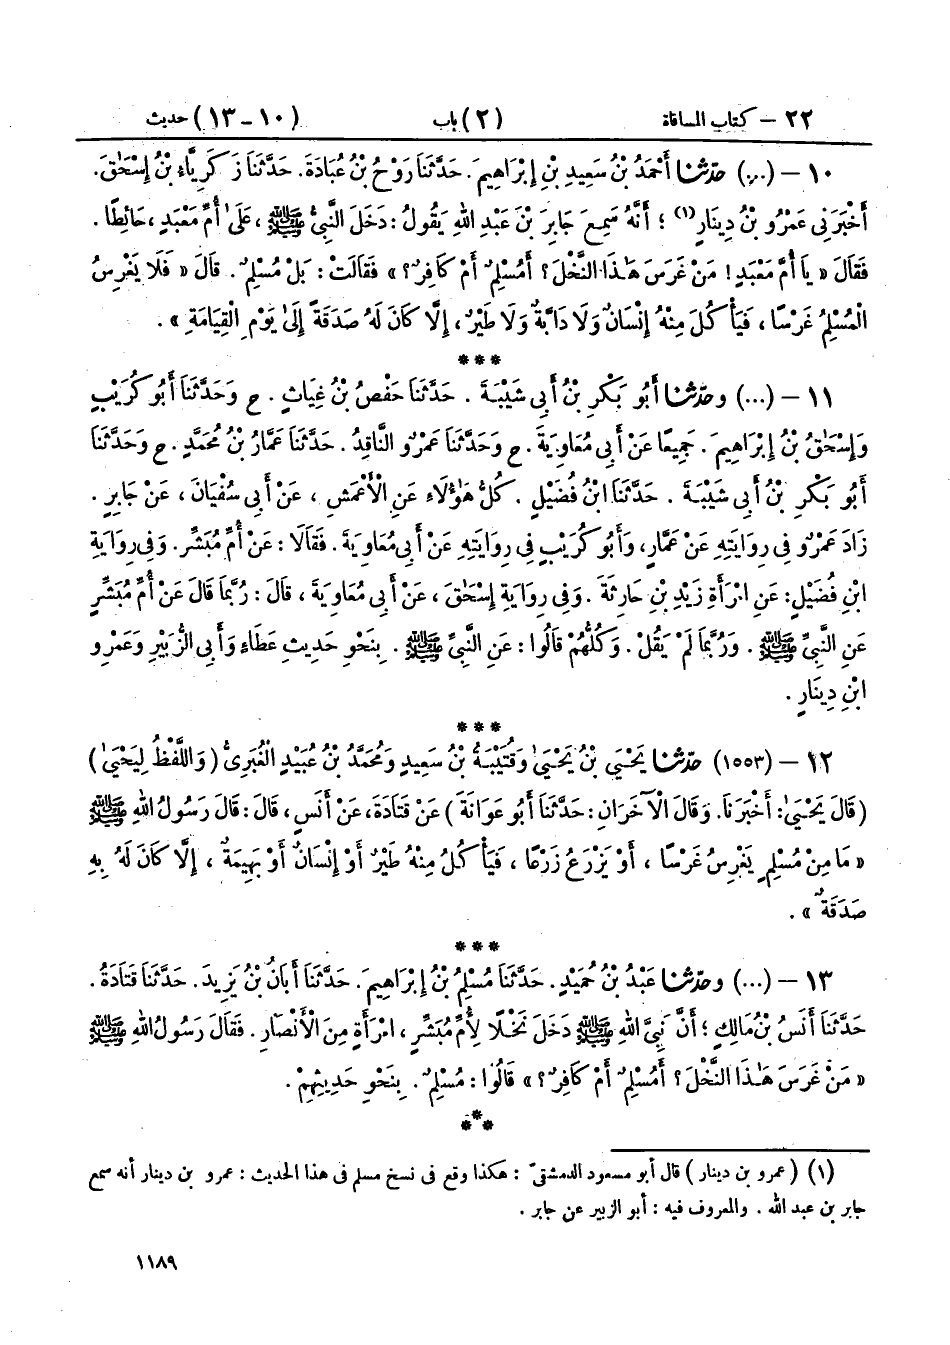 ٢٢ – كتاب المساقاة (٢) باب (١٠ – ١٣) حديث
١٠ – (...) حَدَّثَنَا أَحْمَدُ بْنُ سَعِيدِ بْنِ إِبْرَاهِيمَ . حَدَّثَنَا رَوْحُ بْنُ عُبَادَةَ . حَدَّثَنَا زَكَرِيَّاءُ بْنُ إِسْحَٰقَ .
أَخْبَرَنِي عَمْرُو بْنُ دِينَارٍ (١) ؛ أَنَّهُ سَمِعَ جَابِرَ بْنَ عَبْدِ اللهِ يَقُولُ : دَخَلَ النَّبِيُّ ﷺ ، عَلَىٰ أُمِّ مَعْبَدٍ ، حَائِطًا .
فَقَالَ « يَا أُمَّ مَعْبَدٍ ! مَنْ غَرَسَ هَٰذَا النَّخْلَ ؟ أَمُسْلِمٌ أَمْ كَافِرٌ ؟ » فَقَالَتْ : بَلْ مُسْلِمٌ . قَالَ « فَلَا يَغْرِسُ
الْمُسْلِمُ غَرْسًا ، فَيَأْكُلَ مِنْهُ إِنْسَانٌ وَلَا دَابَّةٌ وَلَا طَيْرٌ ، إِلَّا كَانَ لَهُ صَدَقَةً إِلَىٰ يَوْمِ الْقِيَامَةِ » .
***
١١ – (...) وحَدَّثَنَا أَبُو بَكْرِ بْنُ أَبِي شَيْبَةَ . حَدَّثَنَا حَفْصُ بْنُ غِيَاثٍ . ح وَحَدَّثَنَا أَبُو كُرَيْبٍ
وَإِسْحَٰقُ بْنُ إِبْرَاهِيمَ . جَمِيعًا عَنْ أَبِي مُعَاوِيَةَ . ح وَحَدَّثَنَا عَمْرٌو النَّاقِدُ . حَدَّثَنَا عَمَّارُ بْنُ مُحَمَّدٍ . ح وَحَدَّثَنَا
أَبُو بَكْرِ بْنُ أَبِي شَيْبَةَ . حَدَّثَنَا ابْنُ فُضَيْلٍ . كُلُّ هَٰؤُلَاءِ عَنِ الْأَعْمَشِ ، عَنْ أَبِي سُفْيَانَ ، عَنْ جَابِرٍ .
زَادَ عَمْرٌو فِي رِوَايَتِهِ عَنْ عَمَّارٍ ، وَأَبُو كُرَيْبٍ فِي رِوَايَتِهِ عَنْ أَبِي مُعَاوِيَةَ . فَقَالَا : عَنْ أُمِّ مُبَشِّرٍ . وَفِي رِوَايَةِ
ابْنِ فُضَيْلٍ : عَنِ امْرَأَةِ زَيْدِ بْنِ حَارِثَةَ . وَفِي رِوَايَةِ إِسْحَٰقَ ، عَنْ أَبِي مُعَاوِيَةَ ، قَالَ : رُبَّمَا قَالَ عَنْ أُمِّ مُبَشِّرٍ
عَنِ النَّبِيِّ ﷺ . وَرُبَّمَا لَمْ يَقُلْ . وَكُلُّهُمْ قَالُوا : عَنِ النَّبِيِّ ﷺ . بِنَحْوِ حَدِيثِ عَطَاءٍ وَأَبِي الزُّبَيْرِ وَعَمْرِو
ابْنِ دِينَارٍ .
***
١٢ – (١٥٥٣) حَدَّثَنَا يَحْيَىٰ بْنُ يَحْيَىٰ وَقُتَيْبَةُ بْنُ سَعِيدٍ وَمُحَمَّدُ بْنُ عُبَيْدٍ الْغُبَرِيُّ ( وَاللَّفْظُ لِيَحْيَىٰ )
( قَالَ يَحْيَىٰ : أَخْبَرَنَا . وَقَالَ الْآخَرَانِ : حَدَّثَنَا أَبُو عَوَانَةَ ) عَنْ قَتَادَةَ ، عَنْ أَنَسٍ ، قَالَ : قَالَ رَسُولُ اللهِ ﷺ
« مَا مِنْ مُسْلِمٍ يَغْرِسُ غَرْسًا ، أَوْ يَزْرَعُ زَرْعًا ، فَيَأْكُلُ مِنْهُ طَيْرٌ أَوْ إِنْسَانٌ أَوْ بَهِيمَةٌ ، إِلَّا كَانَ لَهُ بِهِ
صَدَقَةٌ » .
***
١٣ – (...) وحَدَّثَنَا عَبْدُ بْنُ حُمَيْدٍ . حَدَّثَنَا مُسْلِمُ بْنُ إِبْرَاهِيمَ . حَدَّثَنَا أَبَانُ بْنُ يَزِيدَ . حَدَّثَنَا قَتَادَةُ .
حَدَّثَنَا أَنَسُ بْنُ مَالِكٍ ؛ أَنَّ نَبِيَّ اللهِ ﷺ دَخَلَ نَخْلًا لِأُمِّ مُبَشِّرٍ ، امْرَأَةٍ مِنَ الْأَنْصَارِ . فَقَالَ رَسُولُ اللهِ ﷺ
« مَنْ غَرَسَ هَٰذَا النَّخْلَ ؟ أَمُسْلِمٌ أَمْ كَافِرٌ ؟ » قَالُوا : مُسْلِمٌ . بِنَحْوِ حَدِيثِهِمْ .
***
(١) ( عمرو بن دينار ) قال أبو مسعود الدمشقىّ : هكذا وقع فى نسخ مسلم فى هذا الحديث : عمرو بن دينار أنه سمع
جابر بن عبد الله . والمعروف فيه : أبو الزبير عن جابر .
١١٨٩